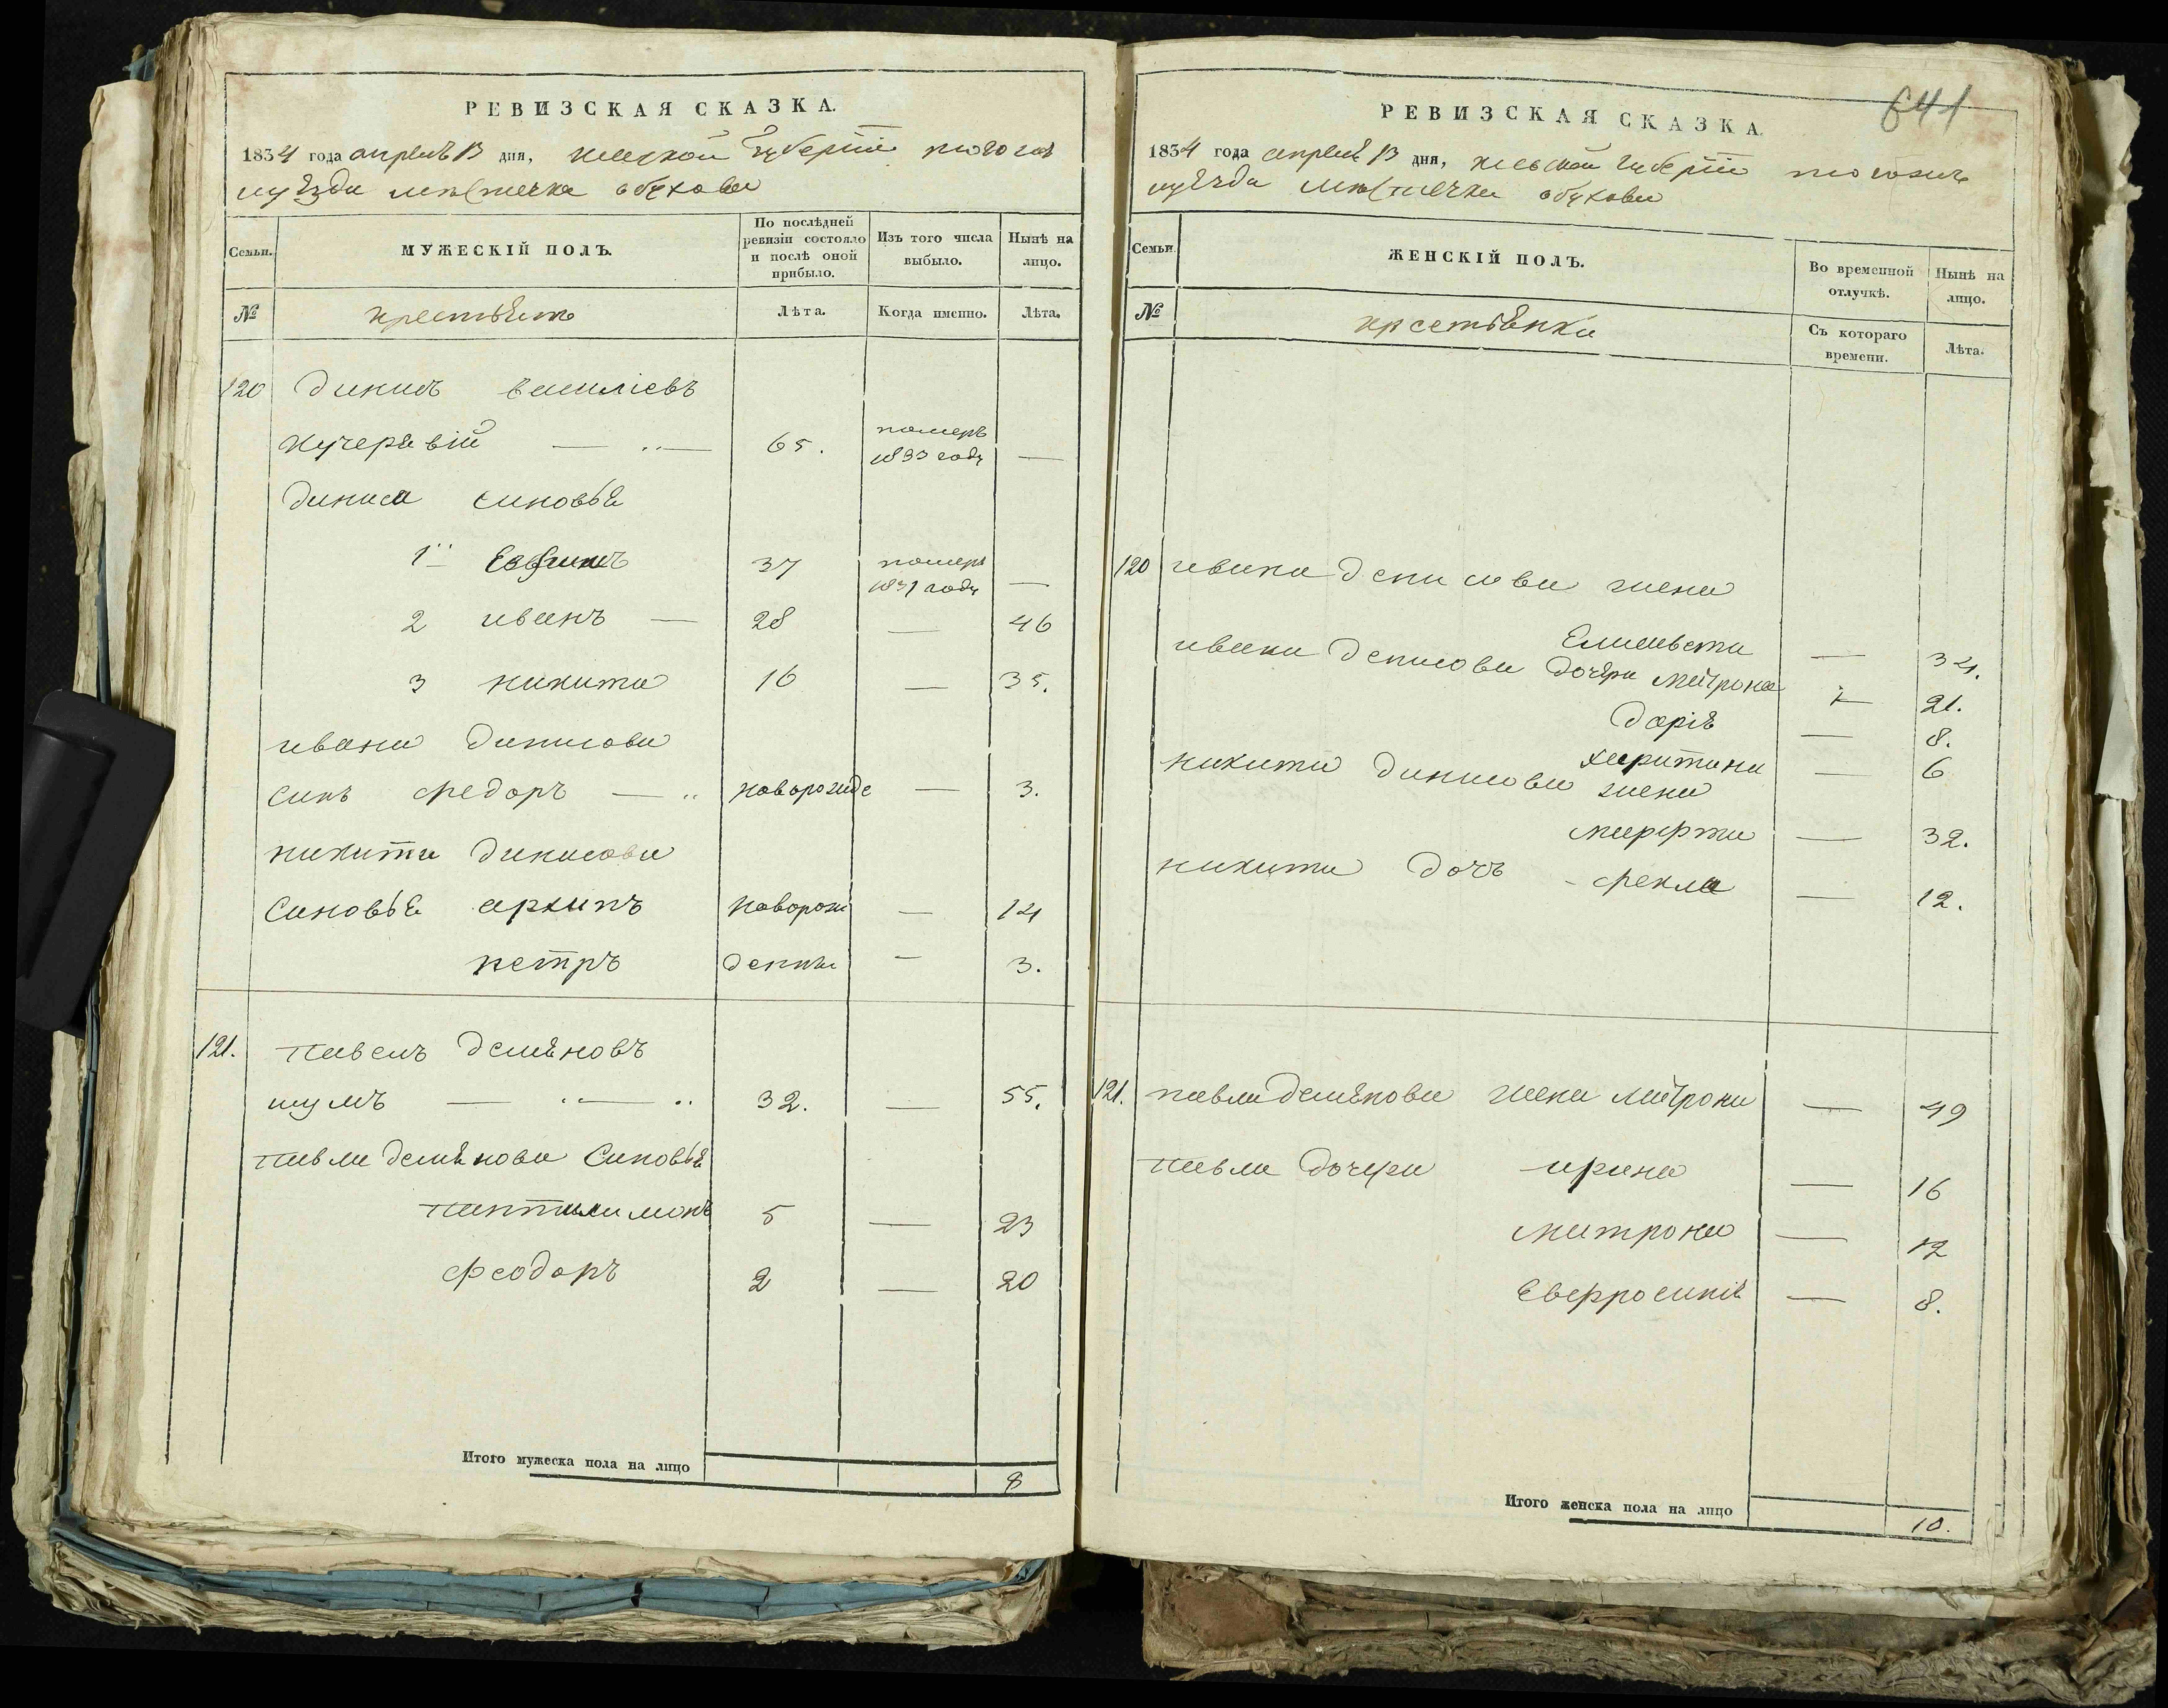 РЕВИЗСКАЯ СКАЗКА.
1834 года апрель 13 дня, киевской губернии тогожъ
уезда местечка обухова
Семьи.
МУЖЕСКІЙ ПОЛЪ.
По послѣдней ревизіи состояло и послѣ оной прибыло.
Изъ того числа выбыло.
Нынѣ на лицо.
№
крестьяне
Лѣта.
Когда именно.
Лѣта.
120 Динисъ василіевъ
кучерявій 65. померъ 1833 году —
Дениса синовья
1й Евфимъ 37 померъ 1831 году —
2 иванъ — 28 — 46
3 никита 16 — 35.
ивана Динисова
синъ федоръ — новорожде — 3.
никити Динисова
Синовья архипъ новорож — 14
петръ денны — 3.
121. павелъ Демяновъ
шумъ — 32. — 55.
павла Демянова Синовья
пантилимонъ 5 — 23
феодоръ 2 — 20
Итого мужеска пола на лицо 8
641
РЕВИЗСКАЯ СКАЗКА
1834 года апреля 13 дня, киевской губерніи тогожъ
уезда местечка обухова
Семьи.
ЖЕНСКІЙ ПОЛЪ.
Во временной отлучкѣ.
Нынѣ на лицо.
№
крсетянки
Съ котораго времени.
Лѣта.
120 ивана Денисова жена
Елисавета — 34.
ивана Денисова Дочери матрона — 21.
Дарія — 8.
харитина — 6
никити Динисова жена
марфта — 32.
никити Дочъ - фекла — 12.
121. павла Демянова жена матрона — 49
павла Дочери ирина — 16
матрона — 12
Евфросинія — 8.
Итого женска пола на лицо 10.